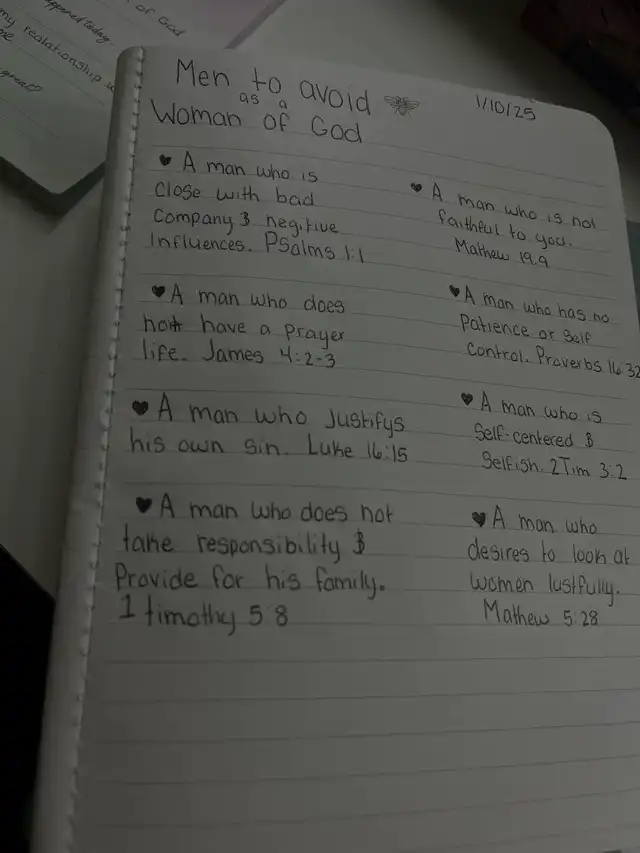 of God
happened today
my realationship is
Men to avoid
as a
Woman of God
1/10/25
♥ A man who is
close with bad
Company & negitive
Influences. Psalms 1:1
♥ A man who does
not have a prayer
life. James 4:2-3
♥ A man who Justifys
his own sin. Luke 16:15
♥ A man who does not
take responsibility &
Provide for his family.
1 timothy 5:8
♥ A man who is not
faithful to you.
Mathew 19:9
♥ A man who has no
Patience or Self
Control. Proverbs 16:32
♥ A man who is
Self-centered &
Selfish. 2Tim 3:2
♥ A man who
desires to look at
women lustfully.
Mathew 5:28